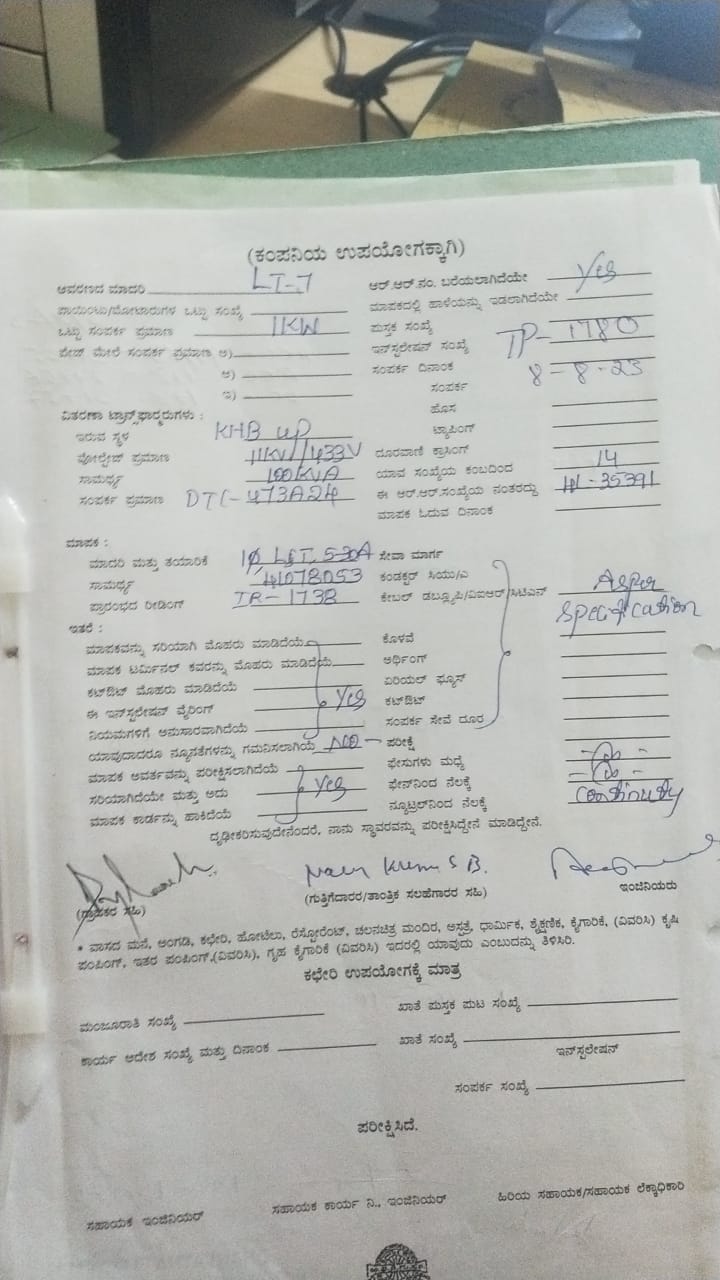 (ಕಂಪನಿಯ ಉಪಯೋಗಕ್ಕಾಗಿ)
ಆವರಣದ ಮಾದರಿ LT-7 ಆರ್.ಆರ್.ನಂ. ಬರೆಯಲಾಗಿದೆಯೇ Yes
ಪಾಯಿಂಟು/ಮೋಟಾರುಗಳ ಒಟ್ಟು ಸಂಖ್ಯೆ ಮಾಪಕದಲ್ಲಿ ಹಾಳೆಯನ್ನು ಇಡಲಾಗಿದೆಯೇ
ಒಟ್ಟು ಸಂಪರ್ಕ ಪ್ರಮಾಣ 1KW ಪುಸ್ತಕ ಸಂಖ್ಯೆ
ಪೇಜ್ ಮೇಲೆ ಸಂಪರ್ಕ ಪ್ರಮಾಣ ಅ) ಇನ್‌ಸ್ಟಲೇಷನ್ ಸಂಖ್ಯೆ TP-1780
ಆ) ಸಂಪರ್ಕ ದಿನಾಂಕ 8-8-23
ಇ) ಸಂಪರ್ಕ
ವಿತರಣಾ ಟ್ರಾನ್ಸ್‌ಫಾರ್ಮರುಗಳು : ಹೊಸ
ಇರುವ ಸ್ಥಳ KHB up ಟ್ಯಾಪಿಂಗ್
ವೋಲ್ಟೇಜ್ ಪ್ರಮಾಣ 11KV/433V ದೂರವಾಣಿ ಕ್ರಾಸಿಂಗ್
ಸಾಮರ್ಥ್ಯ 100KVA ಯಾವ ಸಂಖ್ಯೆಯ ಕಂಬದಿಂದ 14
ಸಂಪರ್ಕ ಪ್ರಮಾಣ DTC-473A24 ಈ ಆರ್.ಆರ್.ಸಂಖ್ಯೆಯ ನಂತರದ್ದು 35391
ಮಾಪಕ ಓದುವ ದಿನಾಂಕ
ಮಾಪಕ :
ಮಾದರಿ ಮತ್ತು ತಯಾರಿಕೆ 1φ, L&T, 5-30A ಸೇವಾ ಮಾರ್ಗ
ಸಾಮರ್ಥ್ಯ 41078053 ಕಂಡಕ್ಟರ್ ಸಿಯು/ಎ
ಪ್ರಾರಂಭದ ರೀಡಿಂಗ್ IR-1738 ಕೇಬಲ್ ಡಬ್ಲ್ಯೂಪಿ/ವಿಐಆರ್/ಸಿಟಿಎನ್ Asper
ಇತರೆ : Specification
ಮಾಪಕವನ್ನು ಸರಿಯಾಗಿ ಮೊಹರು ಮಾಡಿದೆಯೆ ಕೊಳವೆ
ಮಾಪಕ ಟರ್ಮಿನಲ್ ಕವರನ್ನು ಮೊಹರು ಮಾಡಿದೆಯೆ ಅರ್ಥಿಂಗ್
ಕಟ್‌ಔಟ್ ಮೊಹರು ಮಾಡಿದೆಯೆ ಏರಿಯಲ್ ಫ್ಯೂಸ್
ಈ ಇನ್‌ಸ್ಟಲೇಷನ್ ವೈರಿಂಗ್ Yes ಕಟ್‌ಔಟ್
ನಿಯಮಗಳಿಗೆ ಅನುಸಾರವಾಗಿದೆಯೆ ಸಂಪರ್ಕ ಸೇವೆ ದೂರ
ಯಾವುದಾದರೂ ನ್ಯೂನತೆಗಳನ್ನು ಗಮನಿಸಲಾಗಿಯೆ NO ಪರೀಕ್ಷೆ
ಮಾಪಕ ಅವರ್ತವನ್ನು ಪರೀಕ್ಷಿಸಲಾಗಿದೆಯೆ ಫೇಸುಗಳು ಮಧ್ಯೆ
ಸರಿಯಾಗಿದೆಯೇ ಮತ್ತು ಅದು Yes ಫೇಸ್‌ನಿಂದ ನೆಲಕ್ಕೆ
ಮಾಪಕ ಕಾರ್ಡನ್ನು ಹಾಕಿದೆಯೆ ನ್ಯೂಟ್ರಲ್‌ನಿಂದ ನೆಲಕ್ಕೆ Continuty
ದೃಢೀಕರಿಸುವುದೇನೆಂದರೆ, ನಾನು ಸ್ಥಾವರವನ್ನು ಪರೀಕ್ಷಿಸಿದ್ದೇನೆ ಮಾಡಿದ್ದೇನೆ.
(ಗ್ರಾಹಕರ ಸಹಿ) (ಗುತ್ತಿಗೆದಾರರ/ತಾಂತ್ರಿಕ ಸಲಹೆಗಾರರ ಸಹಿ) ಇಂಜಿನಿಯರು
* ವಾಸದ ಮನೆ, ಅಂಗಡಿ, ಕಛೇರಿ, ಹೋಟೆಲು, ರೆಸ್ಟೋರೆಂಟ್, ಚಲನಚಿತ್ರ ಮಂದಿರ, ಅಸ್ಪತ್ರೆ, ಧಾರ್ಮಿಕ, ಶೈಕ್ಷಣಿಕ, ಕೈಗಾರಿಕೆ, (ವಿವರಿಸಿ) ಕೃಷಿ
ಪಂಪಿಂಗ್, ಇತರ ಪಂಪಿಂಗ್,(ವಿವರಿಸಿ), ಗೃಹ ಕೈಗಾರಿಕೆ (ವಿವರಿಸಿ) ಇದರಲ್ಲಿ ಯಾವುದು ಎಂಬುದನ್ನು ತಿಳಿಸಿರಿ.
ಕಛೇರಿ ಉಪಯೋಗಕ್ಕೆ ಮಾತ್ರ
ಮಂಜೂರಾತಿ ಸಂಖ್ಯೆ ಖಾತೆ ಪುಸ್ತಕ ಪುಟ ಸಂಖ್ಯೆ
ಕಾರ್ಯ ಆದೇಶ ಸಂಖ್ಯೆ ಮತ್ತು ದಿನಾಂಕ ಖಾತೆ ಸಂಖ್ಯೆ
ಇನ್‌ಸ್ಟಲೇಷನ್
ಸಂಪರ್ಕ ಸಂಖ್ಯೆ
ಪರೀಕ್ಷಿಸಿದೆ.
ಸಹಾಯಕ ಇಂಜಿನಿಯರ್ ಸಹಾಯಕ ಕಾರ್ಯ ನಿ., ಇಂಜಿನಿಯರ್ ಹಿರಿಯ ಸಹಾಯಕ/ಸಹಾಯಕ ಲೆಕ್ಕಾಧಿಕಾರಿ